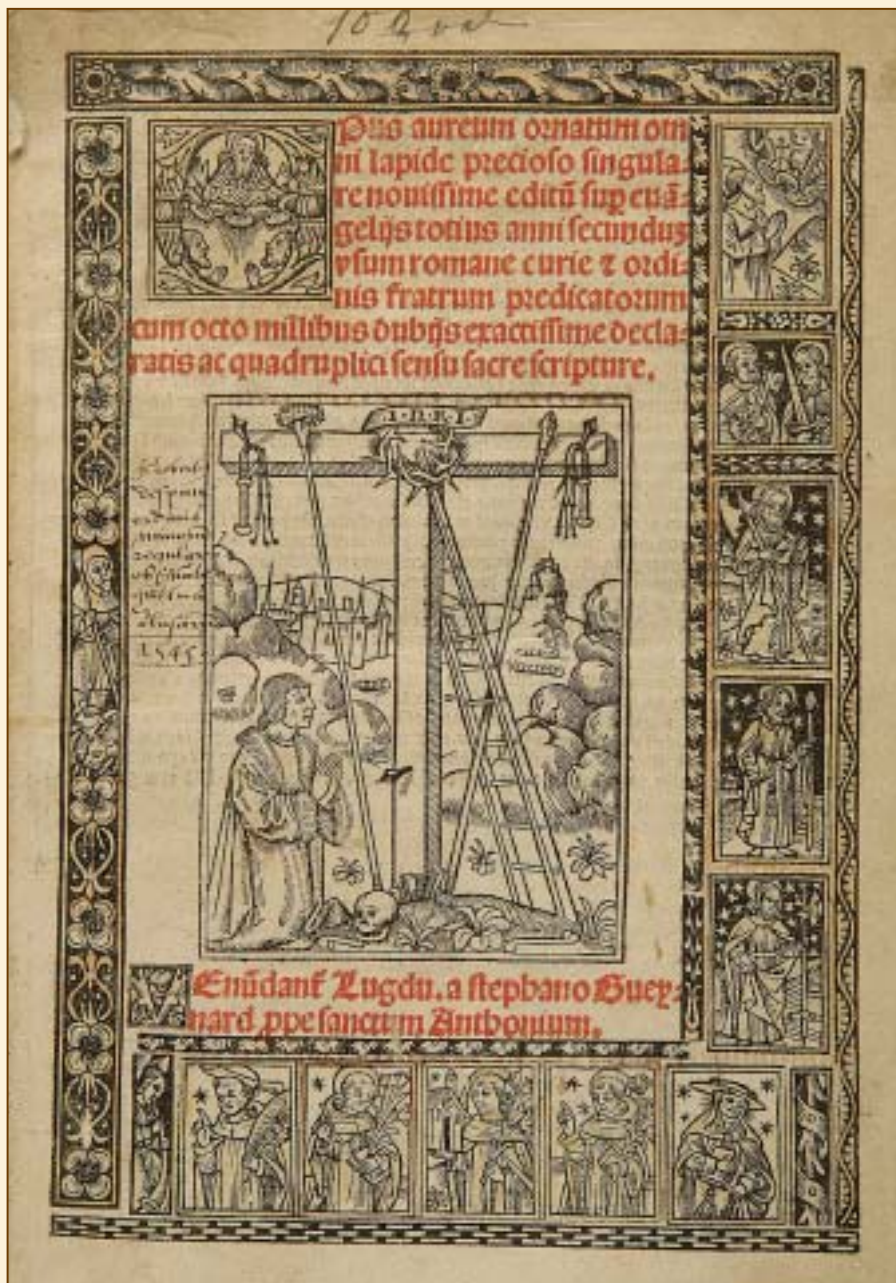 10
Opus aureum ornatum om
ni lapide precioso singula-
re nouissime editū suꝑ euā-
gelijs totius anni secunduꝫ
vsum romane curie ⁊ ordi-
nis fratrum predicatorum
cum octo millibus dubijs exactissime decla-
ratis ac quadruplici sensu sacre scripture.
I·N·R·I
1545
VEnūdant᷑ Lugdu. a stephano Guey-
nard ꝓpe sanctum Anthonium.